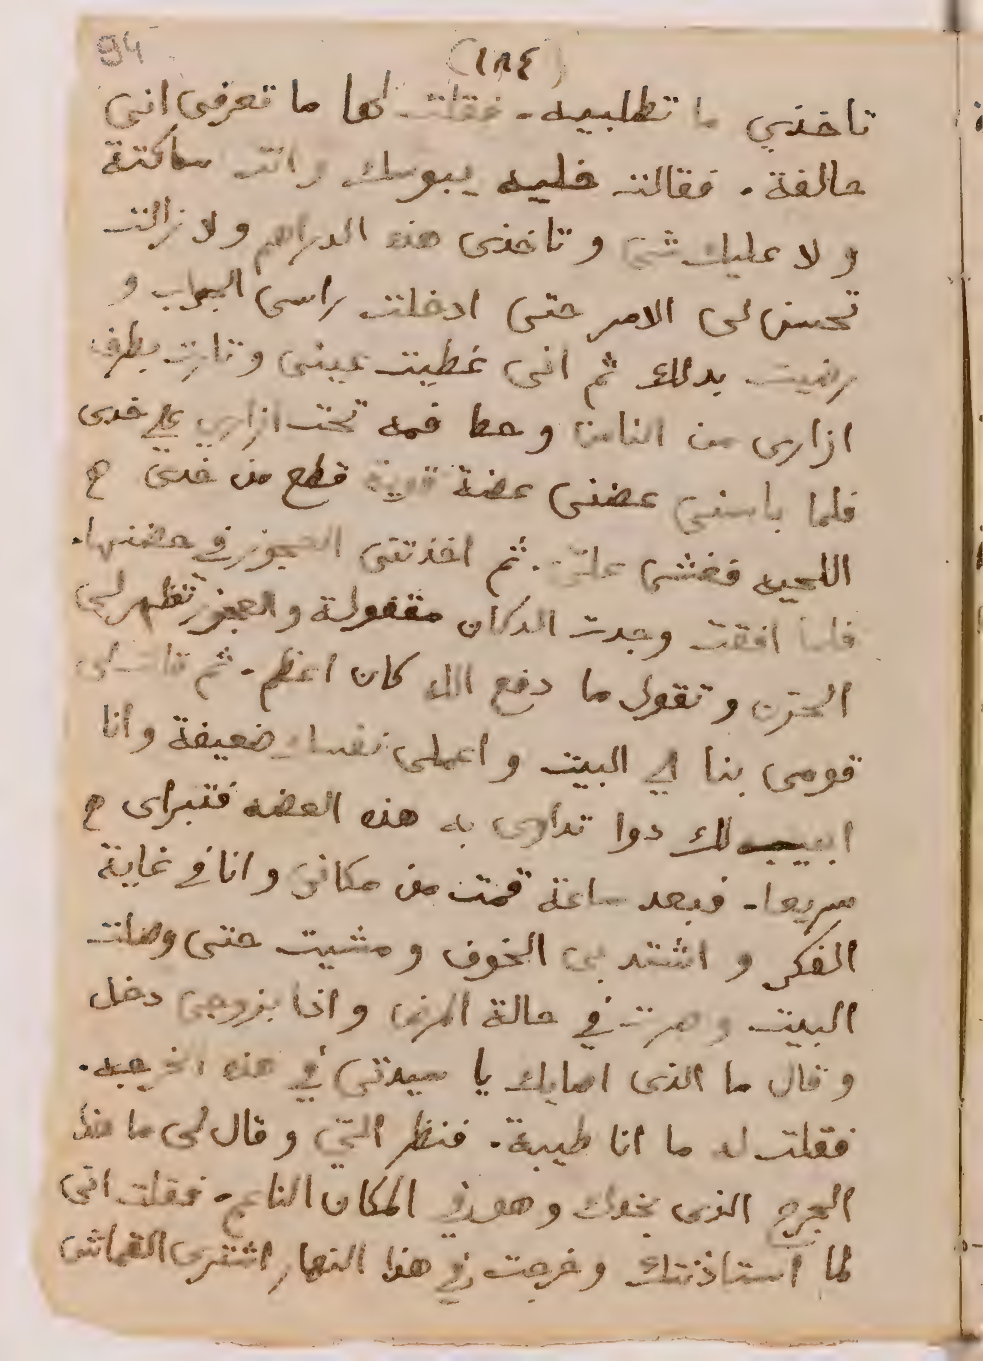 94
(١٨٤)
تاخذي ما تطلبيه. فقلت لها ما تعرفى انى
حالفة. فقالت خليه يبوسك وانت ساكتة
ولا عليك شى وتاخذى هذه الدراهم ولا زالت
تحسن لى الامر حتى ادخلت راسى الجراب و
رضيت بدلك ثم انى غطيت عينى وتاريت بطرف
ازارى من الناس وحط فمه تحت ازارى على خدى
فلما باسنى عضنى عضة قوية قطع من خدى
اللحيه فغشى على. ثم اخذتنى العجوز فى حضنها.
فلما افقت وجدت الدكان مقفولة والعجوز تظهر لى
الحزن وتقول ما دفع الله كان اعظم. ثم قالت لى
قومى بنا الى البيت واعملى نفسك ضعيفة وانا
اجيب لك دوا تداوى به هذه العضه فتبراى
سريعا. فبعد ساعة قمت من مكانى وانا فى غاية
الفكر واشتد بى الخوف ومشيت حتى وصلت
البيت وصرت فى حالة المرض واذا بزوجى دخل
وقال ما الذى اصابك يا سيدتى فى هذه الخرجه.
فقلت له ما انا طيبة. فنظر الىّ وقال لى ما هذا
الجرح الذى بخدك وهو فى المكان الناعم. فقلت انى
لما استاذنتك وخرجت فى هذا النهار اشترى القماش